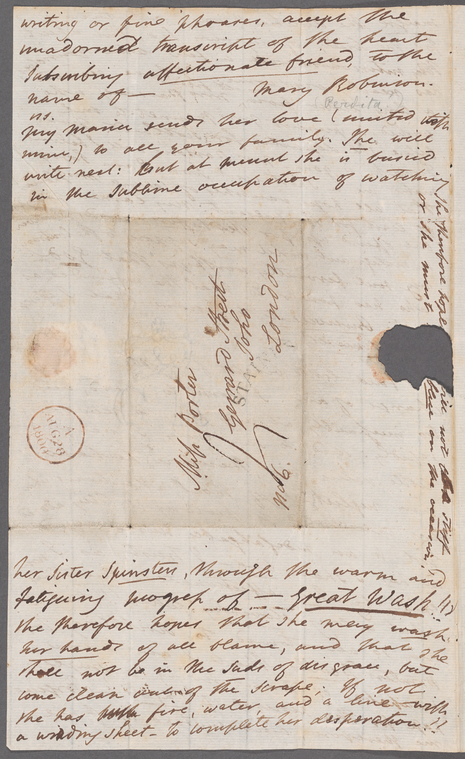 writing or fine phrases, accept the
unadorned transcript of the heart
subscribing affectionate friend, to the
name of — Mary Robinson.
Perdita
My Maria sends her love (united with
mine,) to all your family. She will
write next: but at present she is busied
in the sublime occupation of watching
her Sister Spinsters, through the warm and
fatiguing progress of — Great Wash!!!
She therefore hopes that she may wash
her hands of all blame, and that she
shall not be in the suds of disgrace, but
come clean out of the scrape; If not
she has fire, water, and a line — with
a winding sheet — to complete her desperation!!
She therefore hope
will not stiff
or she must
place on the occasion.
Miss Porter
Gerrard Street
Soho
London
A
AUG 28
1800